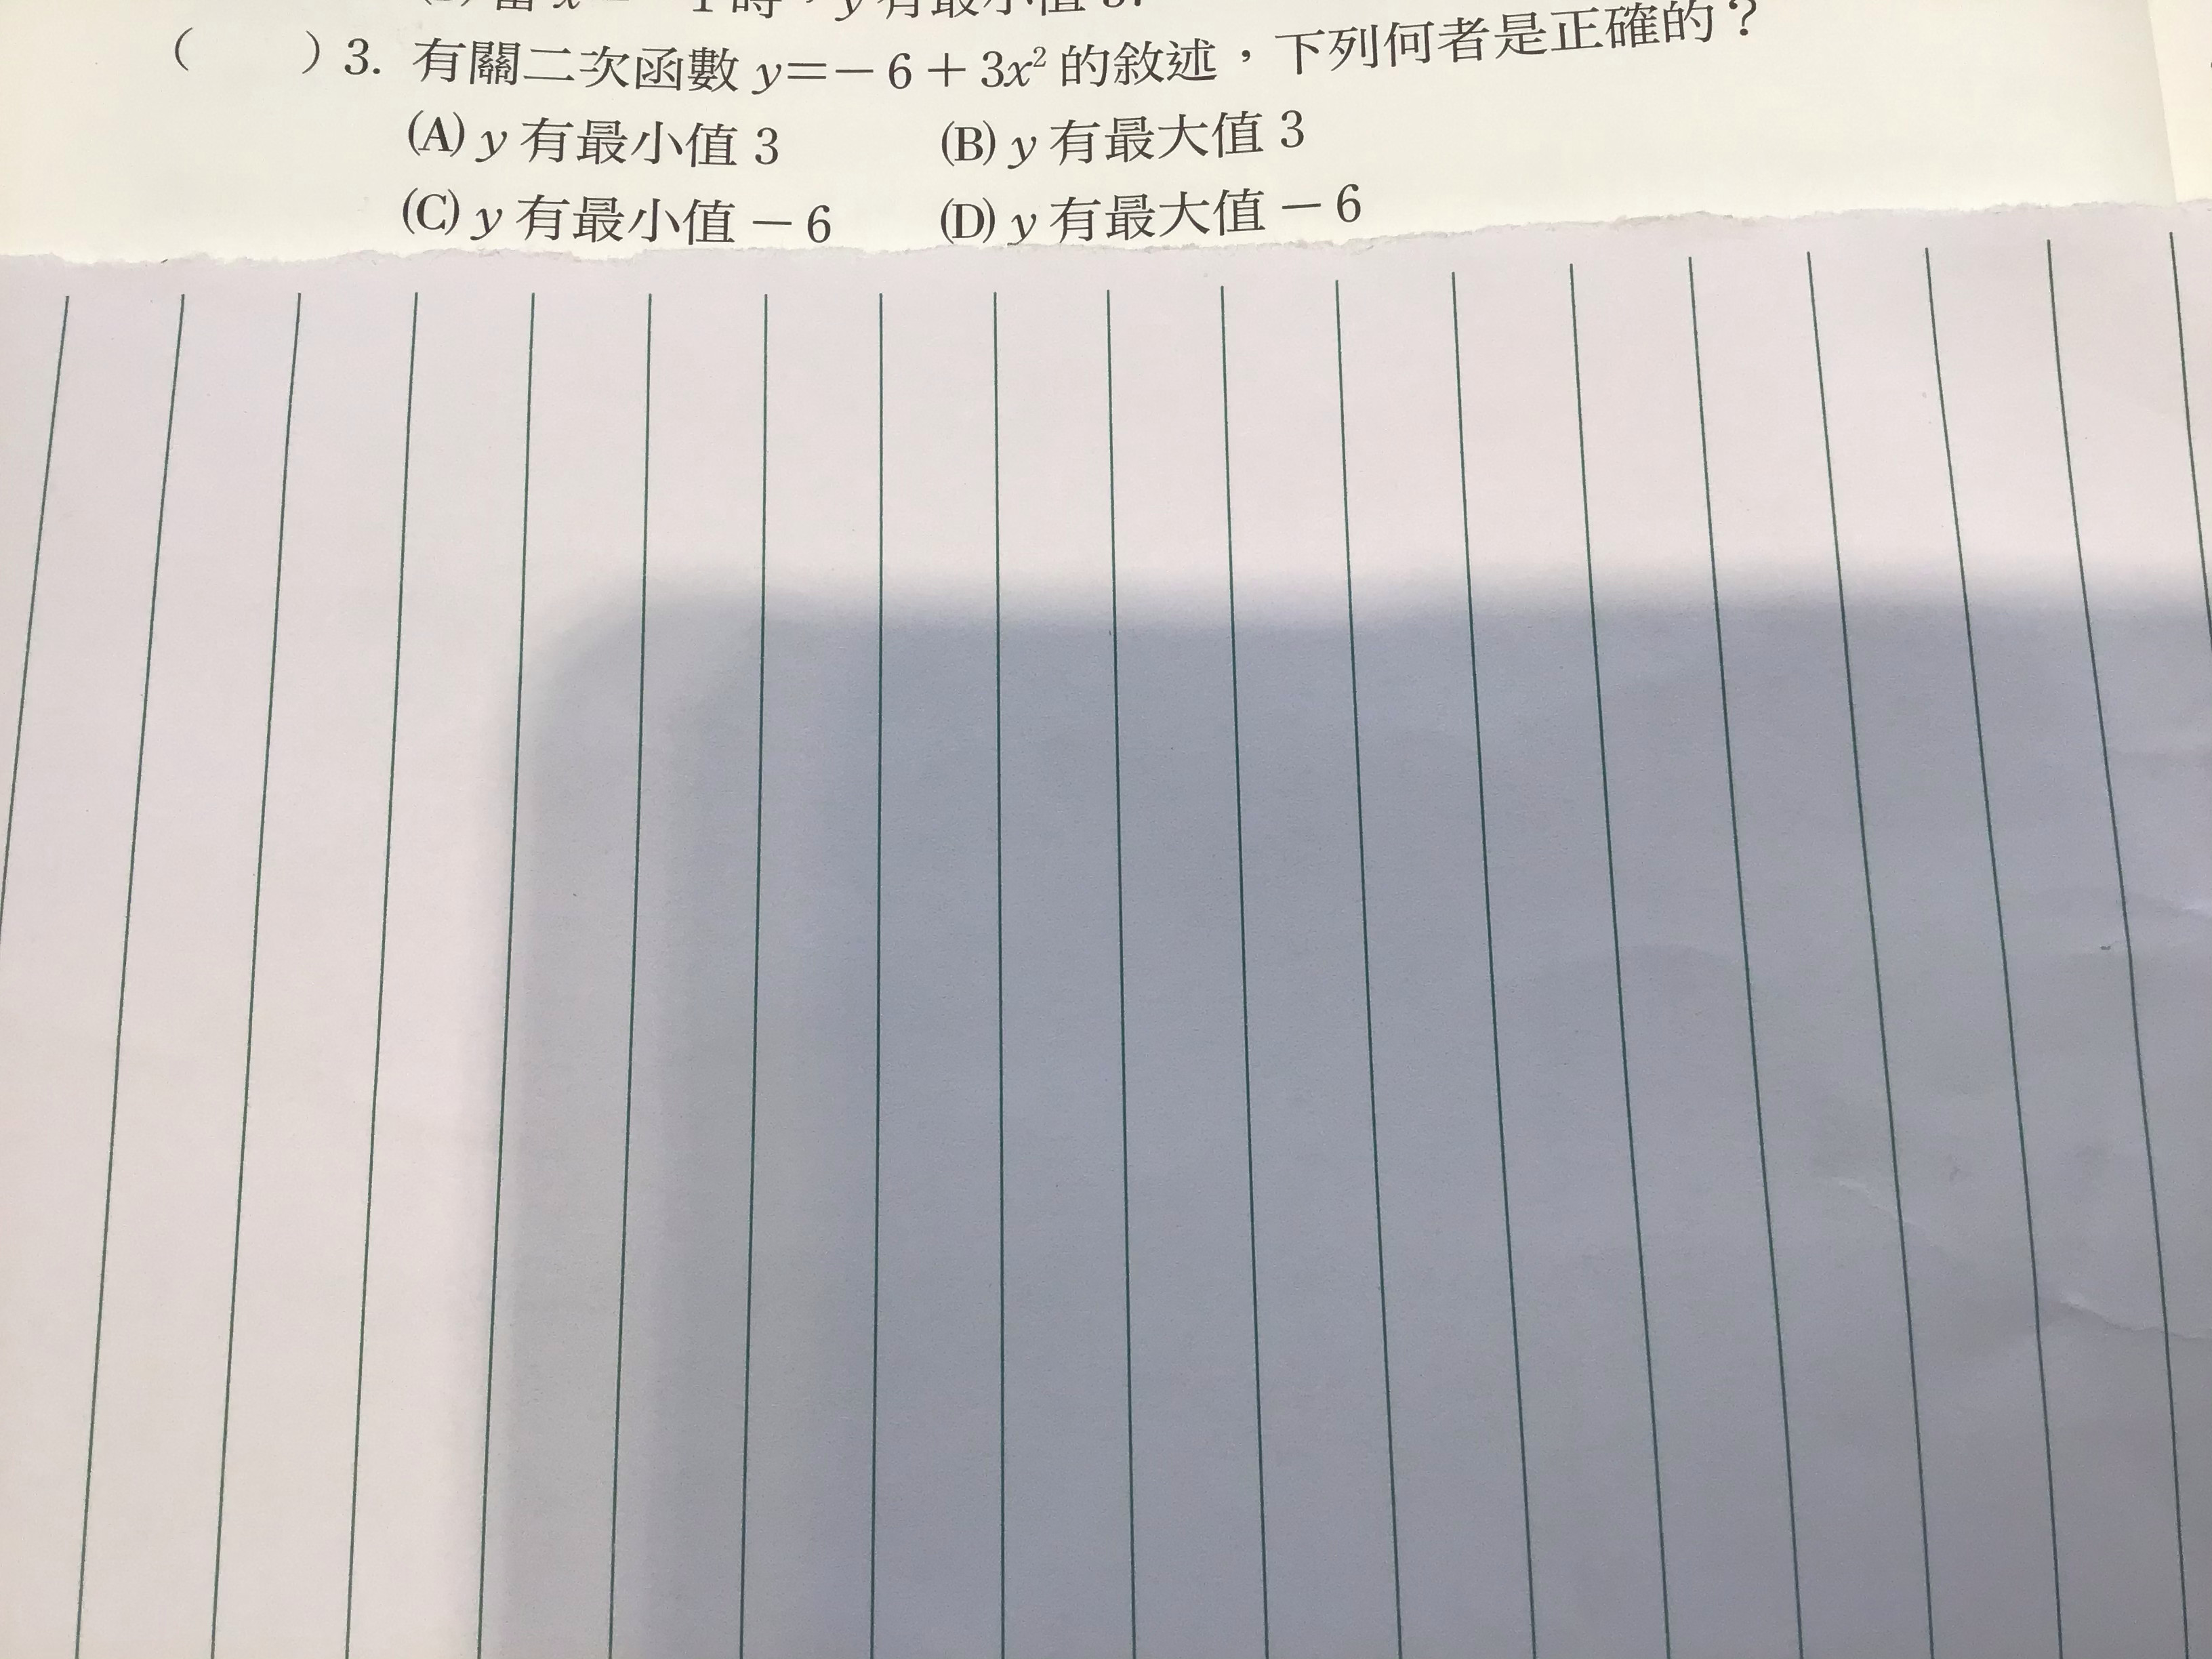 當 x＝－1 時，y 有最小值 3.
（　　）3. 有關二次函數 y＝－6＋3x² 的敘述，下列何者是正確的？
(A) y 有最小值 3　　(B) y 有最大值 3
(C) y 有最小值－6　　(D) y 有最大值－6